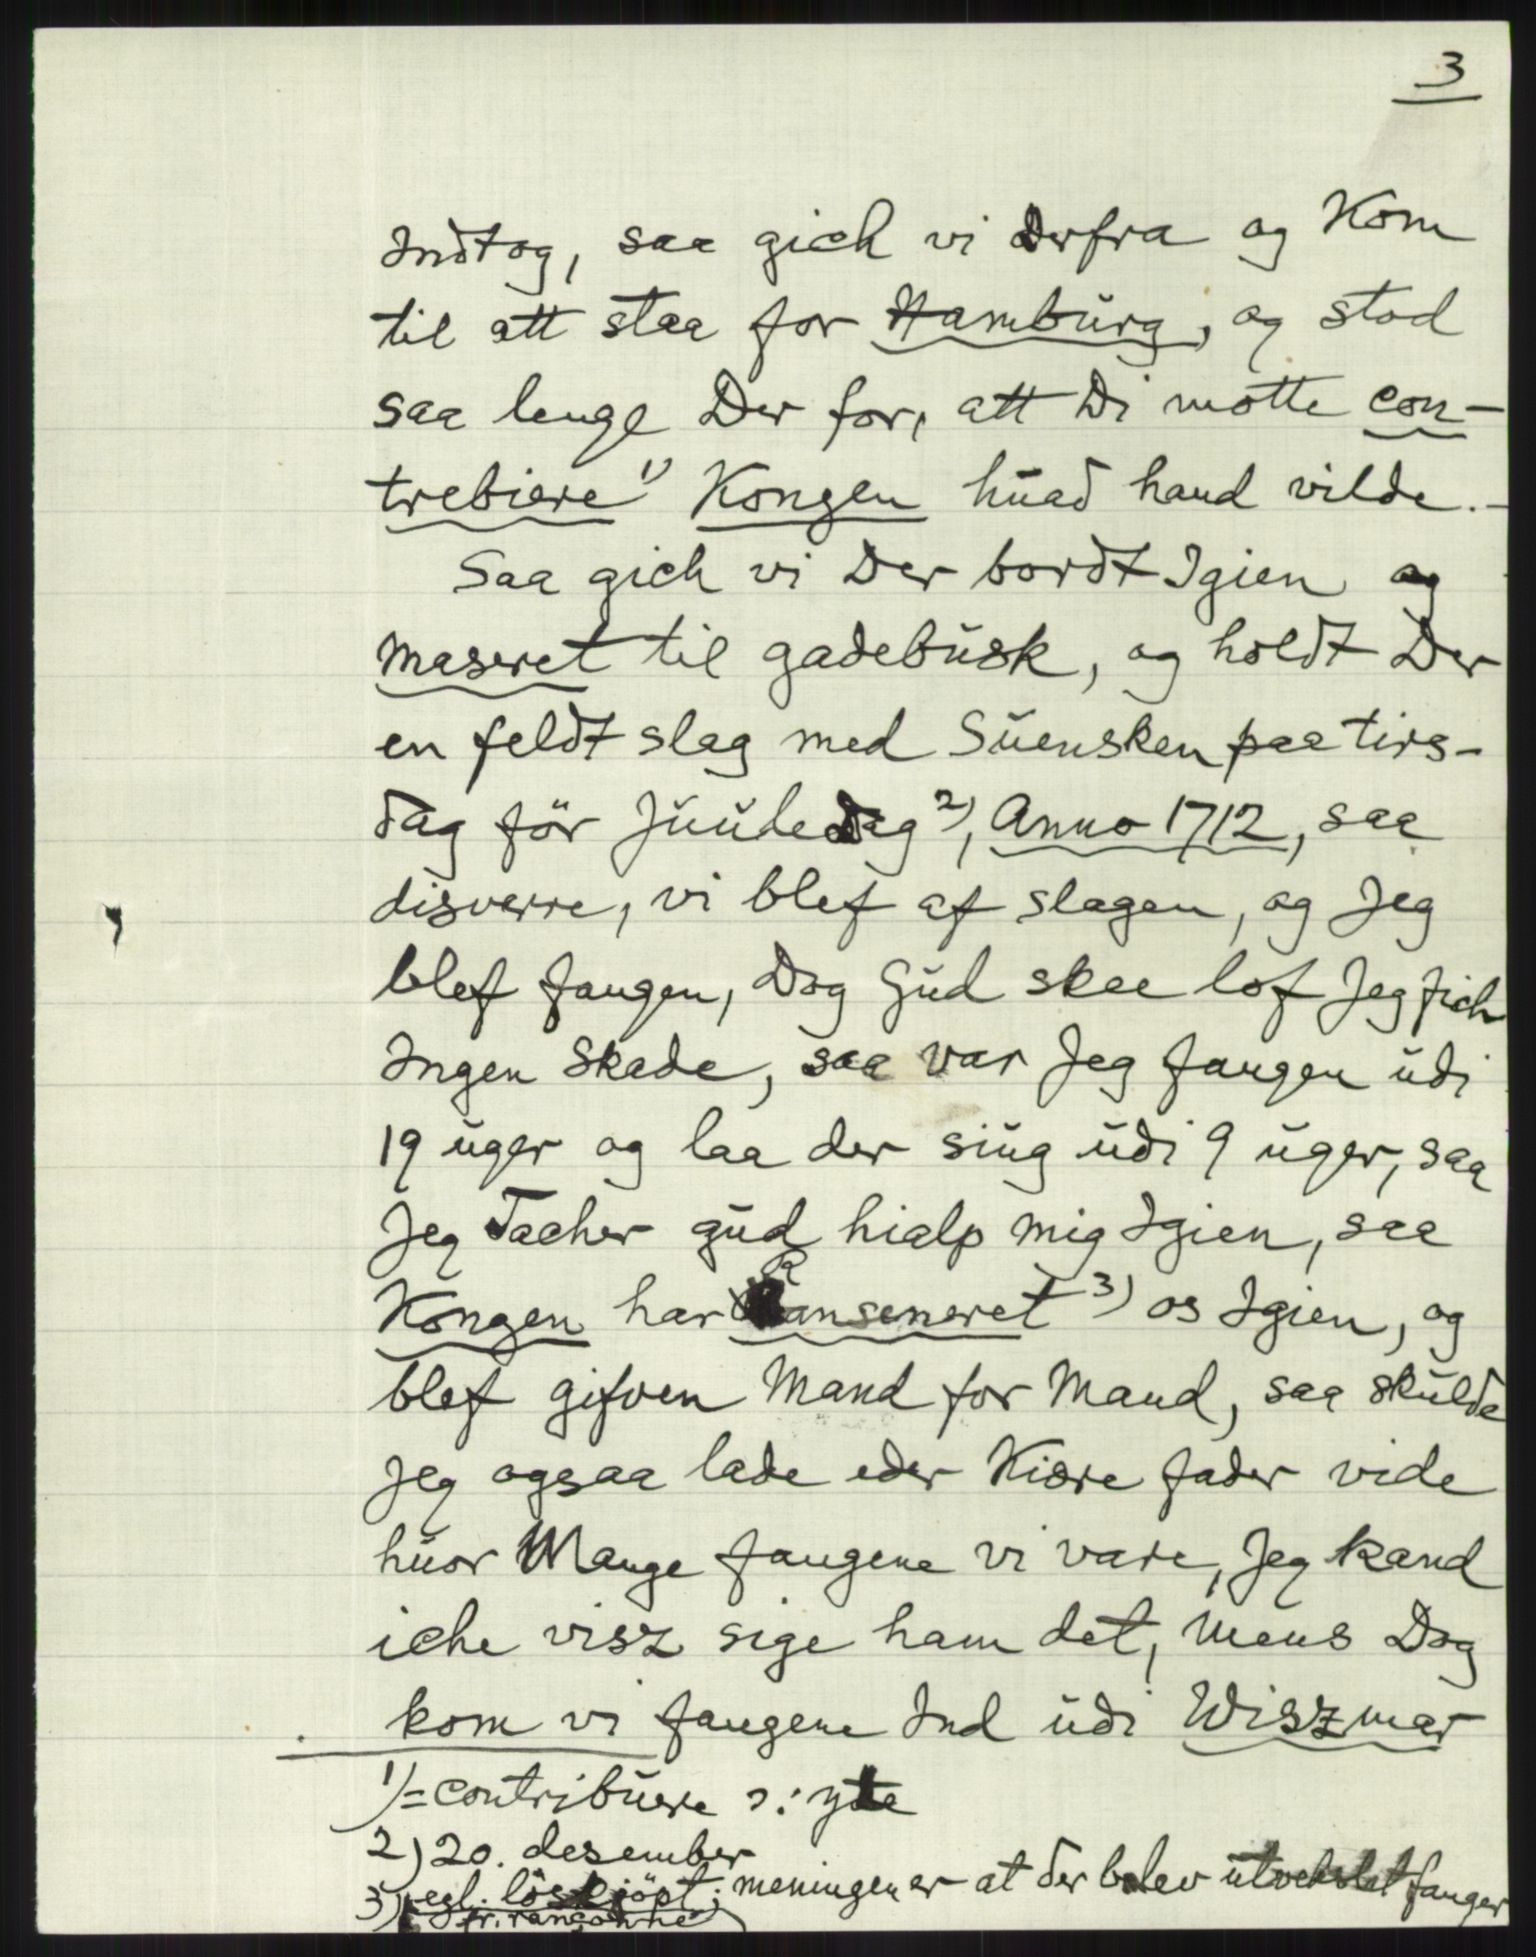 3
Indtog, saa gich vi derfra og Kom
til att staa for Hamburg, og stod
saa lenge Der for, att Di motte con-
trebiere 1) Kongen huad hand vilde.-
Saa gich vi Der bordt Igien og
maseret til gadebusk, og holdt Der
en feldt slag med Suensken paa tirs-
dag för Juule Dag 2), Anno 1712, saa
disverre, vi blef af slagen, og Jeg
blef fangen, Dog Gud skee lof Jeg fich
Ingen Skade, saa var Jeg fangen udi
19 uger og laa der siug udi 9 uger, saa
Jeg Tacher gud hialp mig Igien, saa
Kongen har Ranseneret 3) os Igien, og
blef gifven Mand for Mand, saa skulde
Jeg ogsaa lade eder Kiære fader vide
huor Mange fangene vi vare, Jeg kand
iche visz sige ham det, Mens Dog
kom vi fangene Ind udi Wiszmar
1) = contribuere ɔ: yte
2) 20. desember
3) egl. löskjöpt; meningen er at der blev utvekslet fanger
fr. rançonné